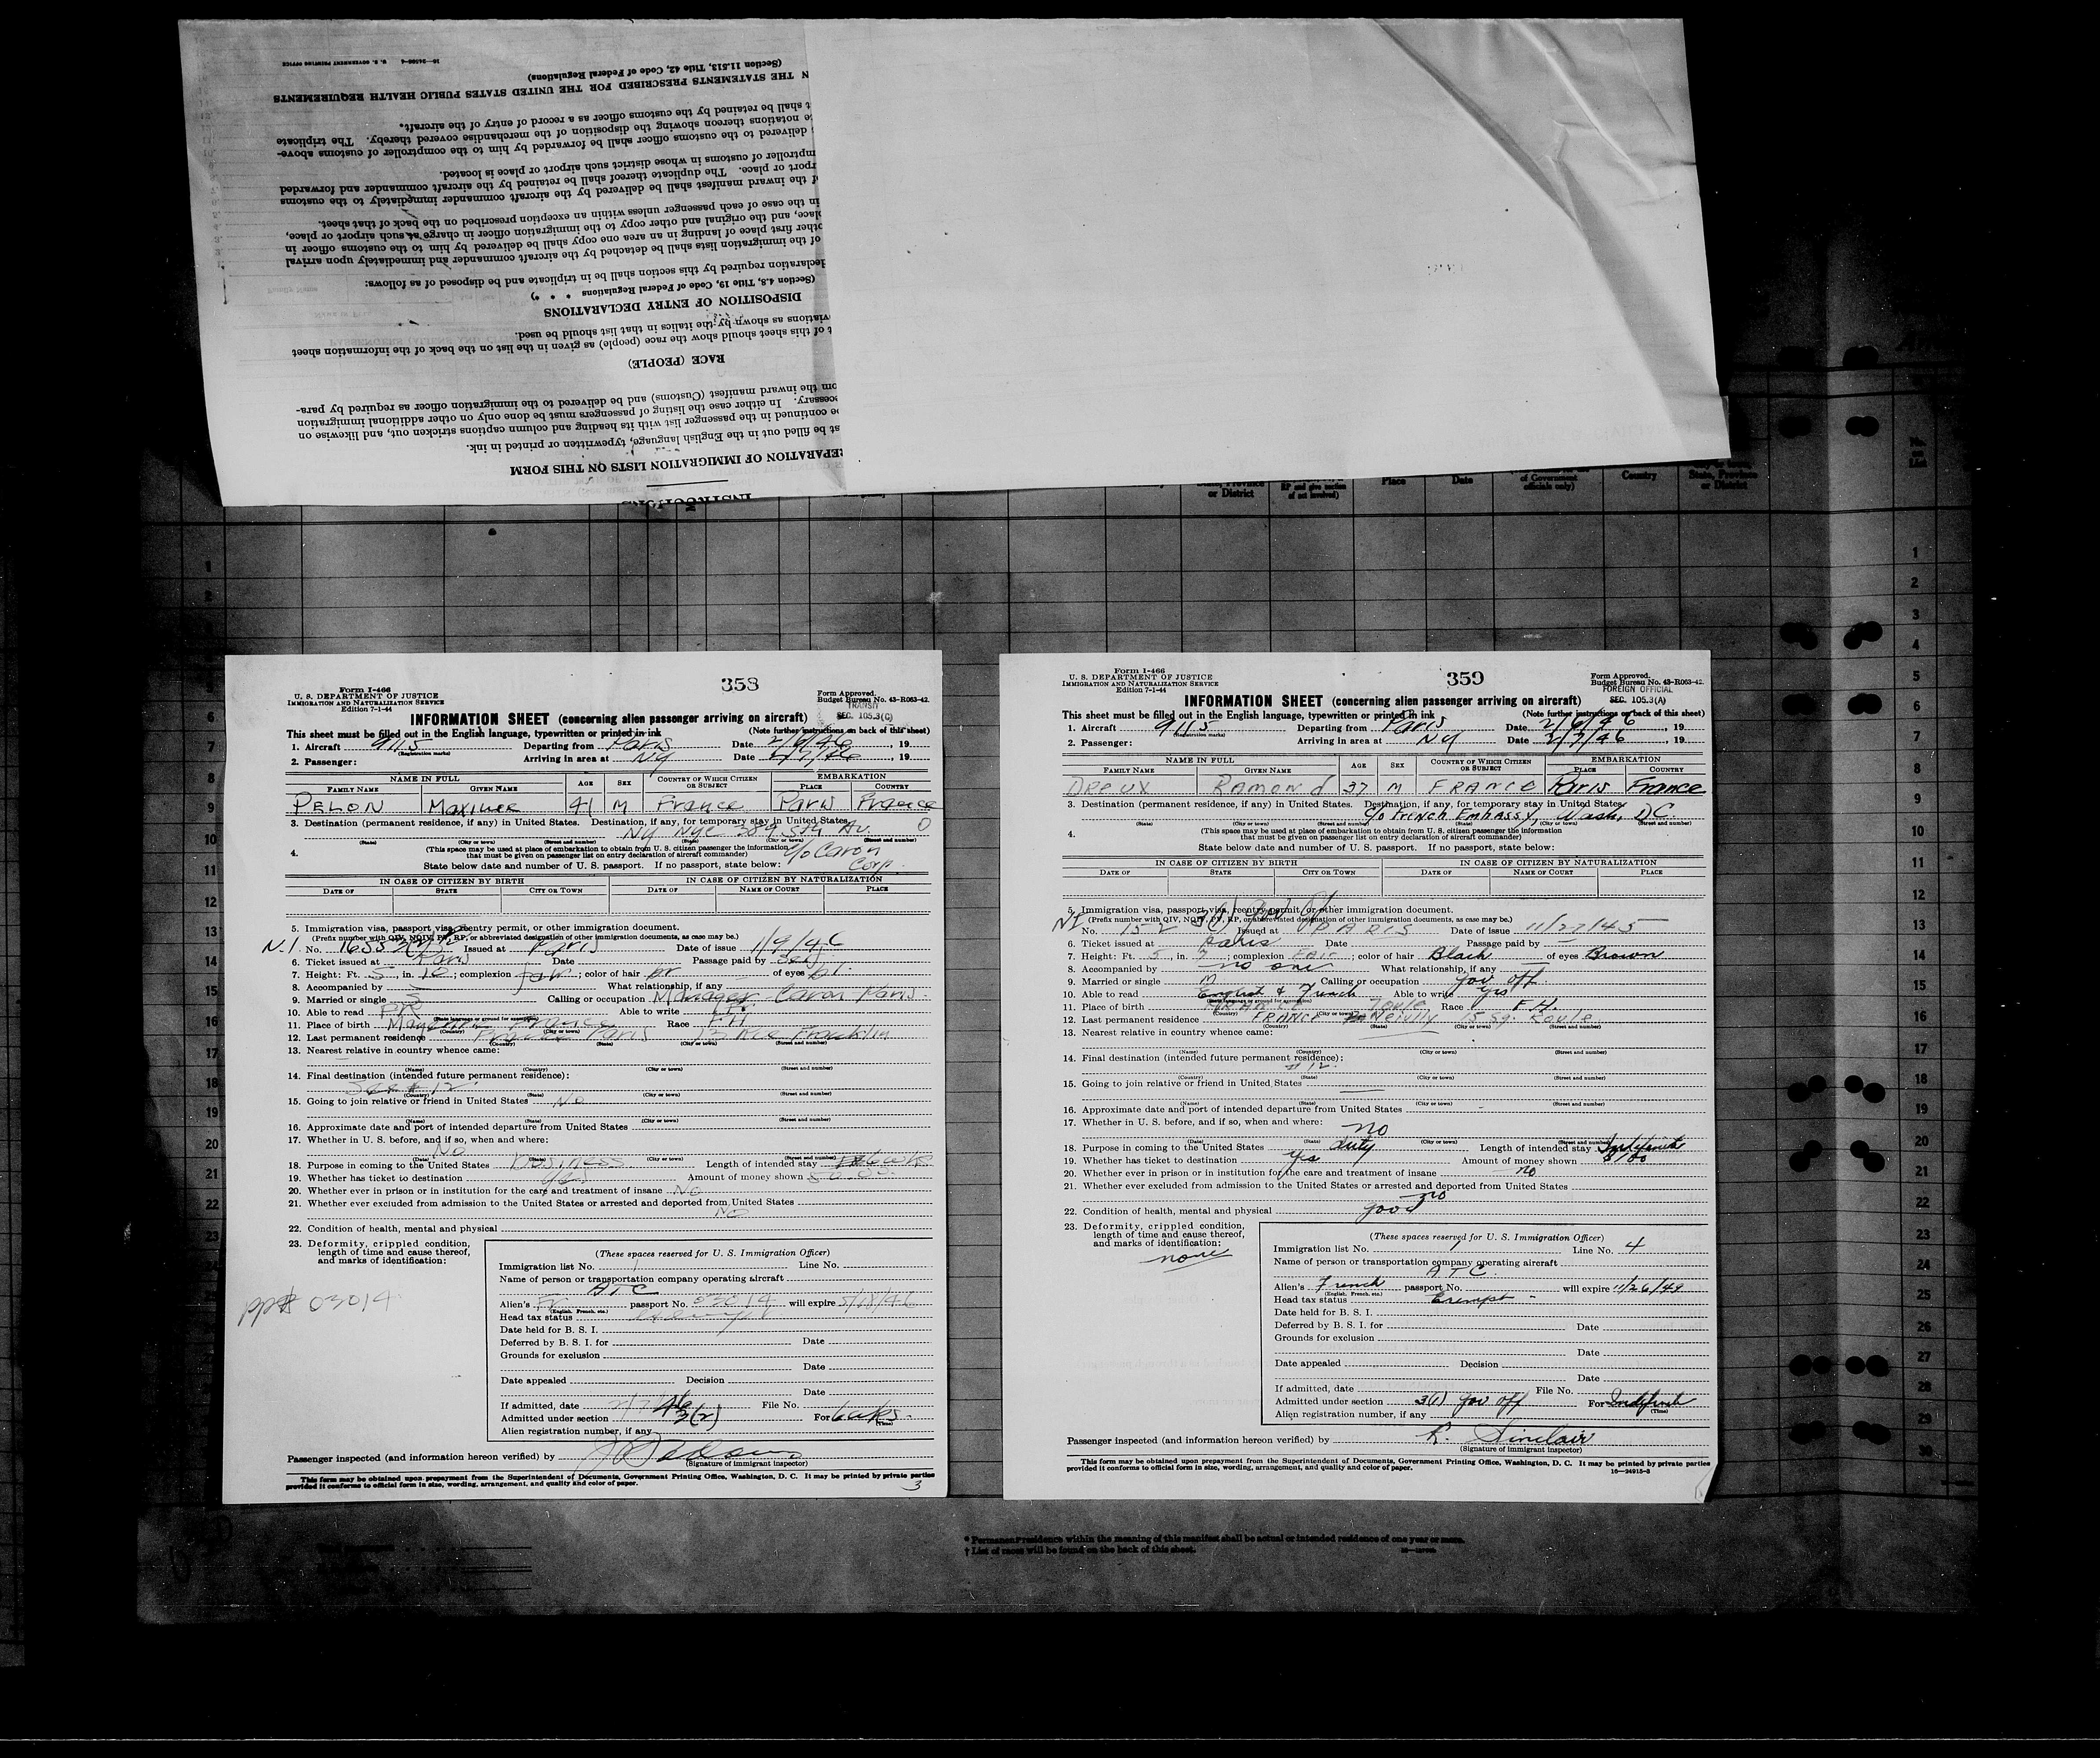 16—24566-4 U. S. GOVERNMENT PRINTING OFFICE
(Section 11.513, Title 42, Code of Federal Regulations)
N THE STATEMENTS PRESCRIBED FOR THE UNITED STATES PUBLIC HEALTH REQUIREMENTS
t shall be retained by the customs officer as a record of entry of the aircraft.
e notations thereon showing the disposition of the merchandise covered thereby. The triplicate
delivered to the customs officer shall be forwarded by him to the comptroller of customs above-
mptroller of customs in whose district such airport or place is located.
rport or place. The duplicate thereof shall be retained by the aircraft commander and forwarded
of the inward manifest shall be delivered by the aircraft commander immediately to the customs
in the case of each passenger unless within an exception prescribed on the back of that sheet.
place, and the original and other copy to the immigration officer in charge at such airport or place,
other first place of landing in an area one copy shall be delivered by him to the customs officer in
of the immigration lists shall be detached by the aircraft commander and immediately upon arrival
declaration required by this section shall be in triplicate and be disposed of as follows:
(Section 4.8, Title 19, Code of Federal Regulations * * *)
DISPOSITION OF ENTRY DECLARATIONS
viations as shown by the italics in that list should be used.
t of this sheet should show the race (people) as given in the list on the back of the information sheet
RACE (PEOPLE)
om the inward manifest (Customs) and be delivered to the immigration officer as required by para-
cessary. In either case the listing of passengers must be done only on other additional immigration
be continued in the passenger list with its heading and column captions stricken out, and likewise on
st be filled out in the English language, typewritten or printed in ink.
EPARATION OF IMMIGRATION LISTS ON THIS FORM
INSTRUCTIONS
State, Province or District
RP and give section of act involved)
Place
Date
of Government officials only)
Country
State, Province or District
Form I-466
U. S. DEPARTMENT OF JUSTICE
IMMIGRATION AND NATURALIZATION SERVICE
Edition 7-1-44
358
Form Approved.
Budget Bureau No. 43-R063-42.
TRANSIT
SEC. 105.3(C)
INFORMATION SHEET (concerning alien passenger arriving on aircraft)
This sheet must be filled out in the English language, typewritten or printed in ink (Note further instructions on back of this sheet)
1. Aircraft 9115 Departing from Paris Date 2/6/46, 19
(Registration marks)
2. Passenger: Arriving in area at NY Date 2/7/46, 19
NAME IN FULL AGE SEX COUNTRY OF WHICH CITIZEN OR SUBJECT EMBARKATION
FAMILY NAME GIVEN NAME PLACE COUNTRY
PELON 41 M France Paris France
3. Destination (permanent residence, if any) in United States. Destination, if any, for temporary stay in United States
NY NYC 389 5th Av.
(State) (City or town) (Street and number) (State) (City or town) (Street and number)
4. (This space may be used at place of embarkation to obtain from U. S. citizen passenger the information
that must be given on passenger list on entry declaration of aircraft commander) c/o Caron Corp.
State below date and number of U. S. passport. If no passport, state below:
IN CASE OF CITIZEN BY BIRTH IN CASE OF CITIZEN BY NATURALIZATION
DATE OF STATE CITY OR TOWN DATE OF NAME OF COURT PLACE
5. Immigration visa, passport visa, reentry permit, or other immigration document.
(Prefix number with QIV, NQIV, PV, RP, or abbreviated designation of other immigration documents, as case may be.)
N.I. No. Issued at Paris Date of issue 1/9/46
6. Ticket issued at Paris Date Passage paid by Self
7. Height: Ft. 5, in. 10; complexion fair; color of hair br of eyes bl.
8. Accompanied by — What relationship, if any
9. Married or single S Calling or occupation Manager - Caron Paris.
10. Able to read Able to write
(State language or ground for exemption)
11. Place of birth France Race FH
(Country) (City or town)
12. Last permanent residence France Paris Franklin
(Country) (State) (City or town) (Street and number)
13. Nearest relative in country whence came:
(Name) (Country) (City or town) (Street and number)
14. Final destination (intended future permanent residence):
See # 12.
(Country) (State) (City or town) (Street and number)
15. Going to join relative or friend in United States No
(Name) (State) (City or town) (Street and number)
16. Approximate date and port of intended departure from United States
17. Whether in U. S. before, and if so, when and where:
No
(Date) (State) (City or town) (Street and number)
18. Purpose in coming to the United States Business Length of intended stay 6 wks
19. Whether has ticket to destination yes Amount of money shown
20. Whether ever in prison or in institution for the care and treatment of insane No
21. Whether ever excluded from admission to the United States or arrested and deported from United States
NO
22. Condition of health, mental and physical
23. Deformity, crippled condition,
length of time and cause thereof,
and marks of identification:
pp# 03014
(These spaces reserved for U. S. Immigration Officer)
Immigration list No. 1 Line No.
Name of person or transportation company operating aircraft
ATC
Alien's Fr passport No. 03014 will expire
(English, French, etc.)
Head tax status exempt
Date held for B. S. I.
Deferred by B. S. I. for Date
Grounds for exclusion
Date
Date appealed Decision
Date
If admitted, date 2/7/46 File No.
Admitted under section 3(2) For 6 wks.
(Time)
Alien registration number, if any
Passenger inspected (and information hereon verified) by
(Signature of immigrant inspector)
This form may be obtained upon prepayment from the Superintendent of Documents, Government Printing Office, Washington, D. C. It may be printed by private parties
provided it conforms to official form in size, wording, arrangement, and quality and color of paper.
3
Form I-466
U. S. DEPARTMENT OF JUSTICE
IMMIGRATION AND NATURALIZATION SERVICE
Edition 7-1-44
359
Form Approved.
Budget Bureau No. 43-R063-42.
FOREIGN OFFICIAL
SEC. 105.3(A)
INFORMATION SHEET (concerning alien passenger arriving on aircraft)
This sheet must be filled out in the English language, typewritten or printed in ink (Note further instructions on back of this sheet)
1. Aircraft 9115 Departing from Paris Date 2/6/46, 19
(Registration marks)
2. Passenger: Arriving in area at NY Date 2/7/46, 19
NAME IN FULL AGE SEX COUNTRY OF WHICH CITIZEN OR SUBJECT EMBARKATION
FAMILY NAME GIVEN NAME PLACE COUNTRY
DREUX RAMOND 37 M FRANCE Paris France
3. Destination (permanent residence, if any) in United States. Destination, if any, for temporary stay in United States
c/o French Embassy, Wash, DC.
(State) (City or town) (Street and number) (State) (City or town) (Street and number)
4. (This space may be used at place of embarkation to obtain from U. S. citizen passenger the information
that must be given on passenger list on entry declaration of aircraft commander)
State below date and number of U. S. passport. If no passport, state below:
IN CASE OF CITIZEN BY BIRTH IN CASE OF CITIZEN BY NATURALIZATION
DATE OF STATE CITY OR TOWN DATE OF NAME OF COURT PLACE
5. Immigration visa, passport visa, reentry permit, or other immigration document.
3(1) Gov Of
(Prefix number with QIV, NQIV, PV, RP, or abbreviated designation of other immigration documents, as case may be.)
NI No. 152 Issued at PARIS Date of issue 11/27/45
6. Ticket issued at Paris Date Passage paid by —
7. Height: Ft. 5, in. 7; complexion FAIR; color of hair Black of eyes Brown
8. Accompanied by no one What relationship, if any —
9. Married or single M Calling or occupation gov off.
10. Able to read English & French Able to write yes
(State language or ground for exemption)
11. Place of birth FRANCE Race FH.
(Country) (City or town)
12. Last permanent residence FRANCE Neuilly
(Country) (State) (City or town) (Street and number)
13. Nearest relative in country whence came:
(Name) (Country) (City or town) (Street and number)
14. Final destination (intended future permanent residence):
# 12.
(Country) (State) (City or town) (Street and number)
15. Going to join relative or friend in United States —
(Name) (State) (City or town) (Street and number)
16. Approximate date and port of intended departure from United States
17. Whether in U. S. before, and if so, when and where:
no
(Date) (State) (City or town) (Street and number)
18. Purpose in coming to the United States duty Length of intended stay Indefinite
19. Whether has ticket to destination yes Amount of money shown $100
20. Whether ever in prison or in institution for the care and treatment of insane no
21. Whether ever excluded from admission to the United States or arrested and deported from United States
no
22. Condition of health, mental and physical good
23. Deformity, crippled condition,
length of time and cause thereof,
and marks of identification:
none
(These spaces reserved for U. S. Immigration Officer)
Immigration list No. 1 Line No. 4
Name of person or transportation company operating aircraft
ATC
Alien's French passport No. will expire 11/26/49
(English, French, etc.)
Head tax status Exempt -
Date held for B. S. I.
Deferred by B. S. I. for Date
Grounds for exclusion
Date
Date appealed Decision
Date
If admitted, date File No.
Admitted under section 3(1) gov off For Indefinite
(Time)
Alien registration number, if any
Passenger inspected (and information hereon verified) by R. Sinclair
(Signature of immigrant inspector)
This form may be obtained upon prepayment from the Superintendent of Documents, Government Printing Office, Washington, D. C. It may be printed by private parties
provided it conforms to official form in size, wording, arrangement, and quality and color of paper.
16—24915-3
* Permanent residence within the meaning of this manifest shall be actual or intended residence of one year or more.
† List of races will be found on the back of this sheet.